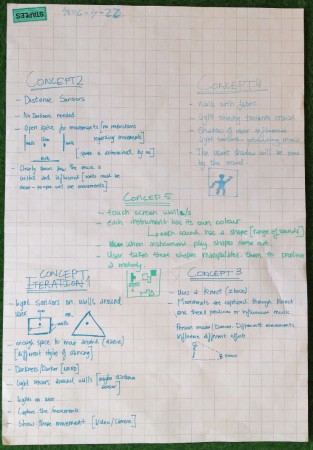 STAPLES
CONCEPT 2
- Distance Sensors
- No Darkness needed
- Open space for movements [no restrictions
regarding movements]
[space is determined by us]
- Clearly shows how the music is
walls must be
near-no-ppl will be movements]
CONCEPT 4
- Walls with fabric
- Light shining towards crowd
- Shadow of user influences
light sensors producing music
- The users shadow will be seen
by the crowd
CONCEPT 5
- touch screen wall/s
- each instrument has its own colour
↳ each sound has a shape [range of sounds]
- when instrument play shapes come out
- User takes that shapes manipulates them to produce
a melody.
CONCEPT 1
ITERATION
- light sensors on walls around
user
or
enough space to move around (dance)
[different styles of dancing]
- Darkness/Darker [USED]
- light sensors around walls [maybe distance
sensor]
- lights on user
- Capture the movements
- Show these movement [Video/Camera]
CONCEPT 3
- Uses a Kinect (xbox)
- Movements are captured through Kinect
and these produce or influence music
- Person moves/Dances. Different movements
influence different effects